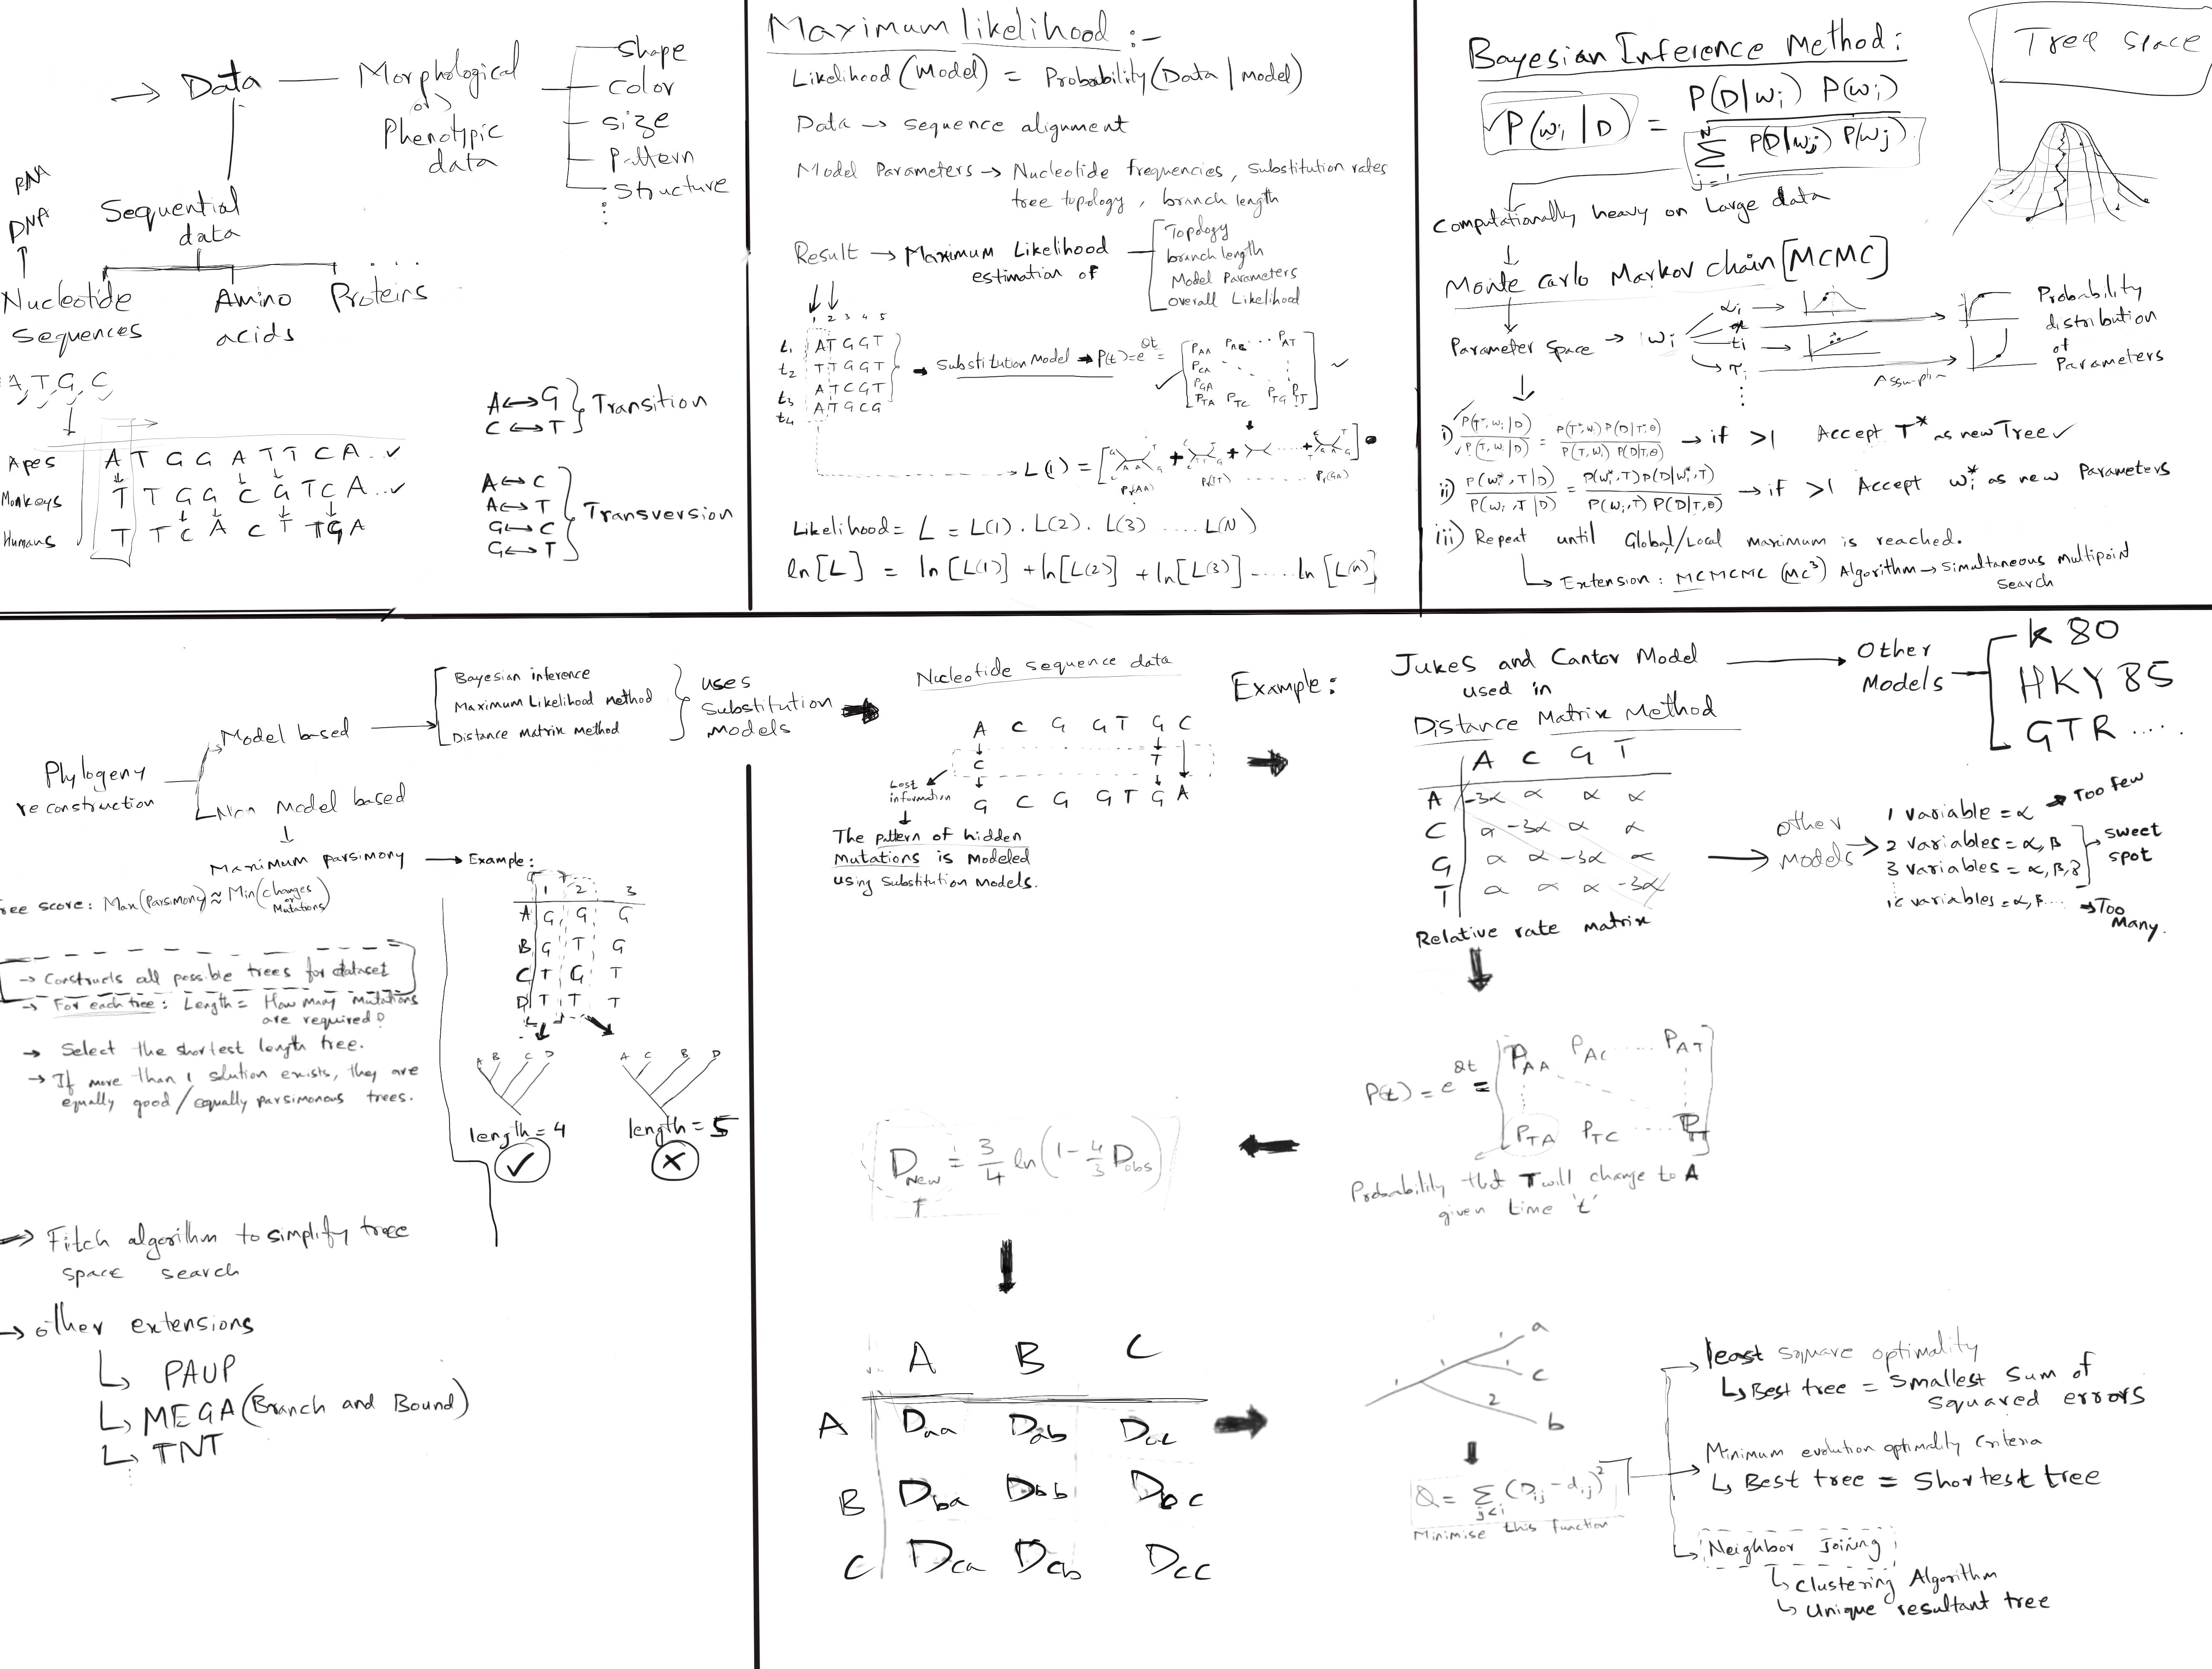 → Data — Morphological
or
Phenotypic
data
Shape
color
size
Pattern
Structure
RNA
DNA
Sequential
data
Nucleotide
sequences
Amino
acids
Proteins
A, T, G, C
Apes A T G G A T T C A .. ✓
Monkeys T T G G C G T C A ..✓
Humans T T C A C T T G A
A↔G
C↔T
Transition
A↔C
A↔T
G↔C
G↔T
Transversion
Maximum likelihood :-
Likelihood (Model) = Probability (Data | model)
Data → sequence alignment
Model Parameters → Nucleotide frequencies, Substitution rates
tree topology, branch length
Result → Maximum Likelihood
estimation of
Topology
branch length
Model Parameters
overall Likelihood
1 2 3 4 5
t1 A T G G T
t2 T T G G T
t3 A T C G T
t4 A T G C G
→ Substitution Model → P(t) = e^Qt =
P_AA P_AC ... P_AT
P_CA
P_GA
P_TA P_TC P_TG P_TT
L(1) = [ + + + .... + ]
Likelihood = L = L(1) . L(2) . L(3) .... L(N)
ln[L] = ln[L(1)] + ln[L(2)] + ln[L(3)] ..... ln[L(n)]
Bayesian Inference Method:
Tree space
P(wi | D) = P(D|wi) P(wi) / Σ_{j=1}^{N} P(D|wj) P(wj)
Computationally heavy on Large data
Monte Carlo Markov chain [MCMC]
Parameter Space → wi
αi →
ti →
τi
Assumption
Probability
distribution
of
Parameters
i) P(T*, wi | D) / P(T, wi | D) = P(T*, wi) P(D|T*, θ) / P(T, wi) P(D|T, θ) → if >1 Accept T* as new Tree ✓
ii) P(wi*, T | D) / P(wi, T | D) = P(wi*, T) P(D|wi*, T) / P(wi, T) P(D|T, θ) → if >1 Accept wi* as new Parameters
iii) Repeat until Global/Local maximum is reached.
↳ Extension: MCMCMC (MC³) Algorithm → Simultaneous multipoint
search
Phylogeny
reconstruction
Model based
Bayesian inference
Maximum Likelihood method
Distance Matrix method
uses
Substitution
models
Non Model based
↓
Maximum parsimony → Example:
Tree score: Max(Parsimony) ≈ Min(changes
or
Mutations)
→ Constructs all possible trees for dataset
→ For each tree: Length = How many Mutations
are required?
→ Select the shortest length tree.
→ If more than 1 solution exists, they are
equally good / equally parsimonous trees.
1 2 3
A G G G
B G T G
C T G T
D T T T
A B C D
A C B D
length = 4
length = 5
⇒ Fitch algorithm to simplify tree
space search
→ other extensions
↳ PAUP
↳ MEGA (Branch and Bound)
↳ TNT
Nucleotide sequence data
A C G G T G C
C T
G C G G T G A
Lost
information
The pattern of hidden
Mutations is Modeled
using Substitution Models.
Example:
Jukes and Cantor Model
used in
Distance Matrix Method
Other
Models
K 80
HKY 85
GTR ....
A C G T
A -3α α α α
C α -3α α α
G α α -3α α
T α α α -3α
Relative rate matrix
other
models
1 variable = α → Too few
2 variables = α, β
3 variables = α, β, γ
sweet
spot
→ Too
Many.
P(t) = e^Qt =
P_AA P_AC .... P_AT
P_TA P_TC P_TT
Probability that T will change to A
given time 't'
D_New = 3/4 ln(1 - 4/3 D_obs)
A B C
A Daa Dab Dac
B Dba Dbb Dbc
C Dca Dcb Dcc
1 a
1 1 c
2 b
Q = Σ_{j<i} (Dij - dij)²
Minimise this function
least square optimality
↳ Best tree = Smallest Sum of
squared errors
Minimum evolution optimality criteria
↳ Best tree = Shortest tree
Neighbor Joining
↳ Clustering Algorithm
↳ Unique resultant tree